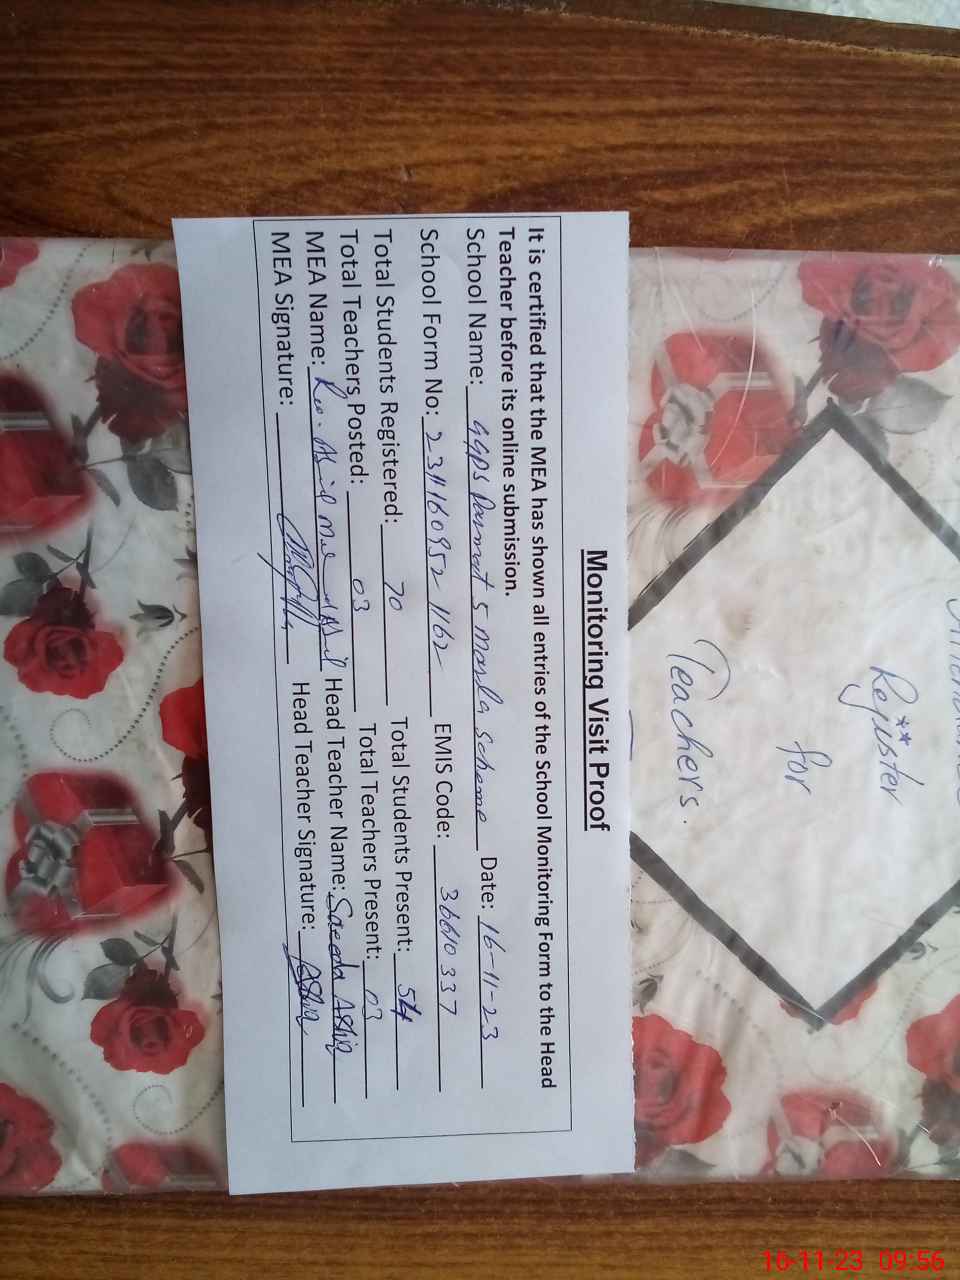 Register
for
Teachers.
Monitoring Visit Proof
It is certified that the MEA has shown all entries of the School Monitoring Form to the Head
Teacher before its online submission.
School Name: GGPS 5 Marla Scheme Date: 16-11-23
School Form No: EMIS Code: 36610337
Total Students Registered: 70 Total Students Present: 54
Total Teachers Posted: 03 Total Teachers Present: 03
MEA Name: Head Teacher Name: Saeeda Ashiq
MEA Signature: Head Teacher Signature: Ashiq
16-11-23 09:56